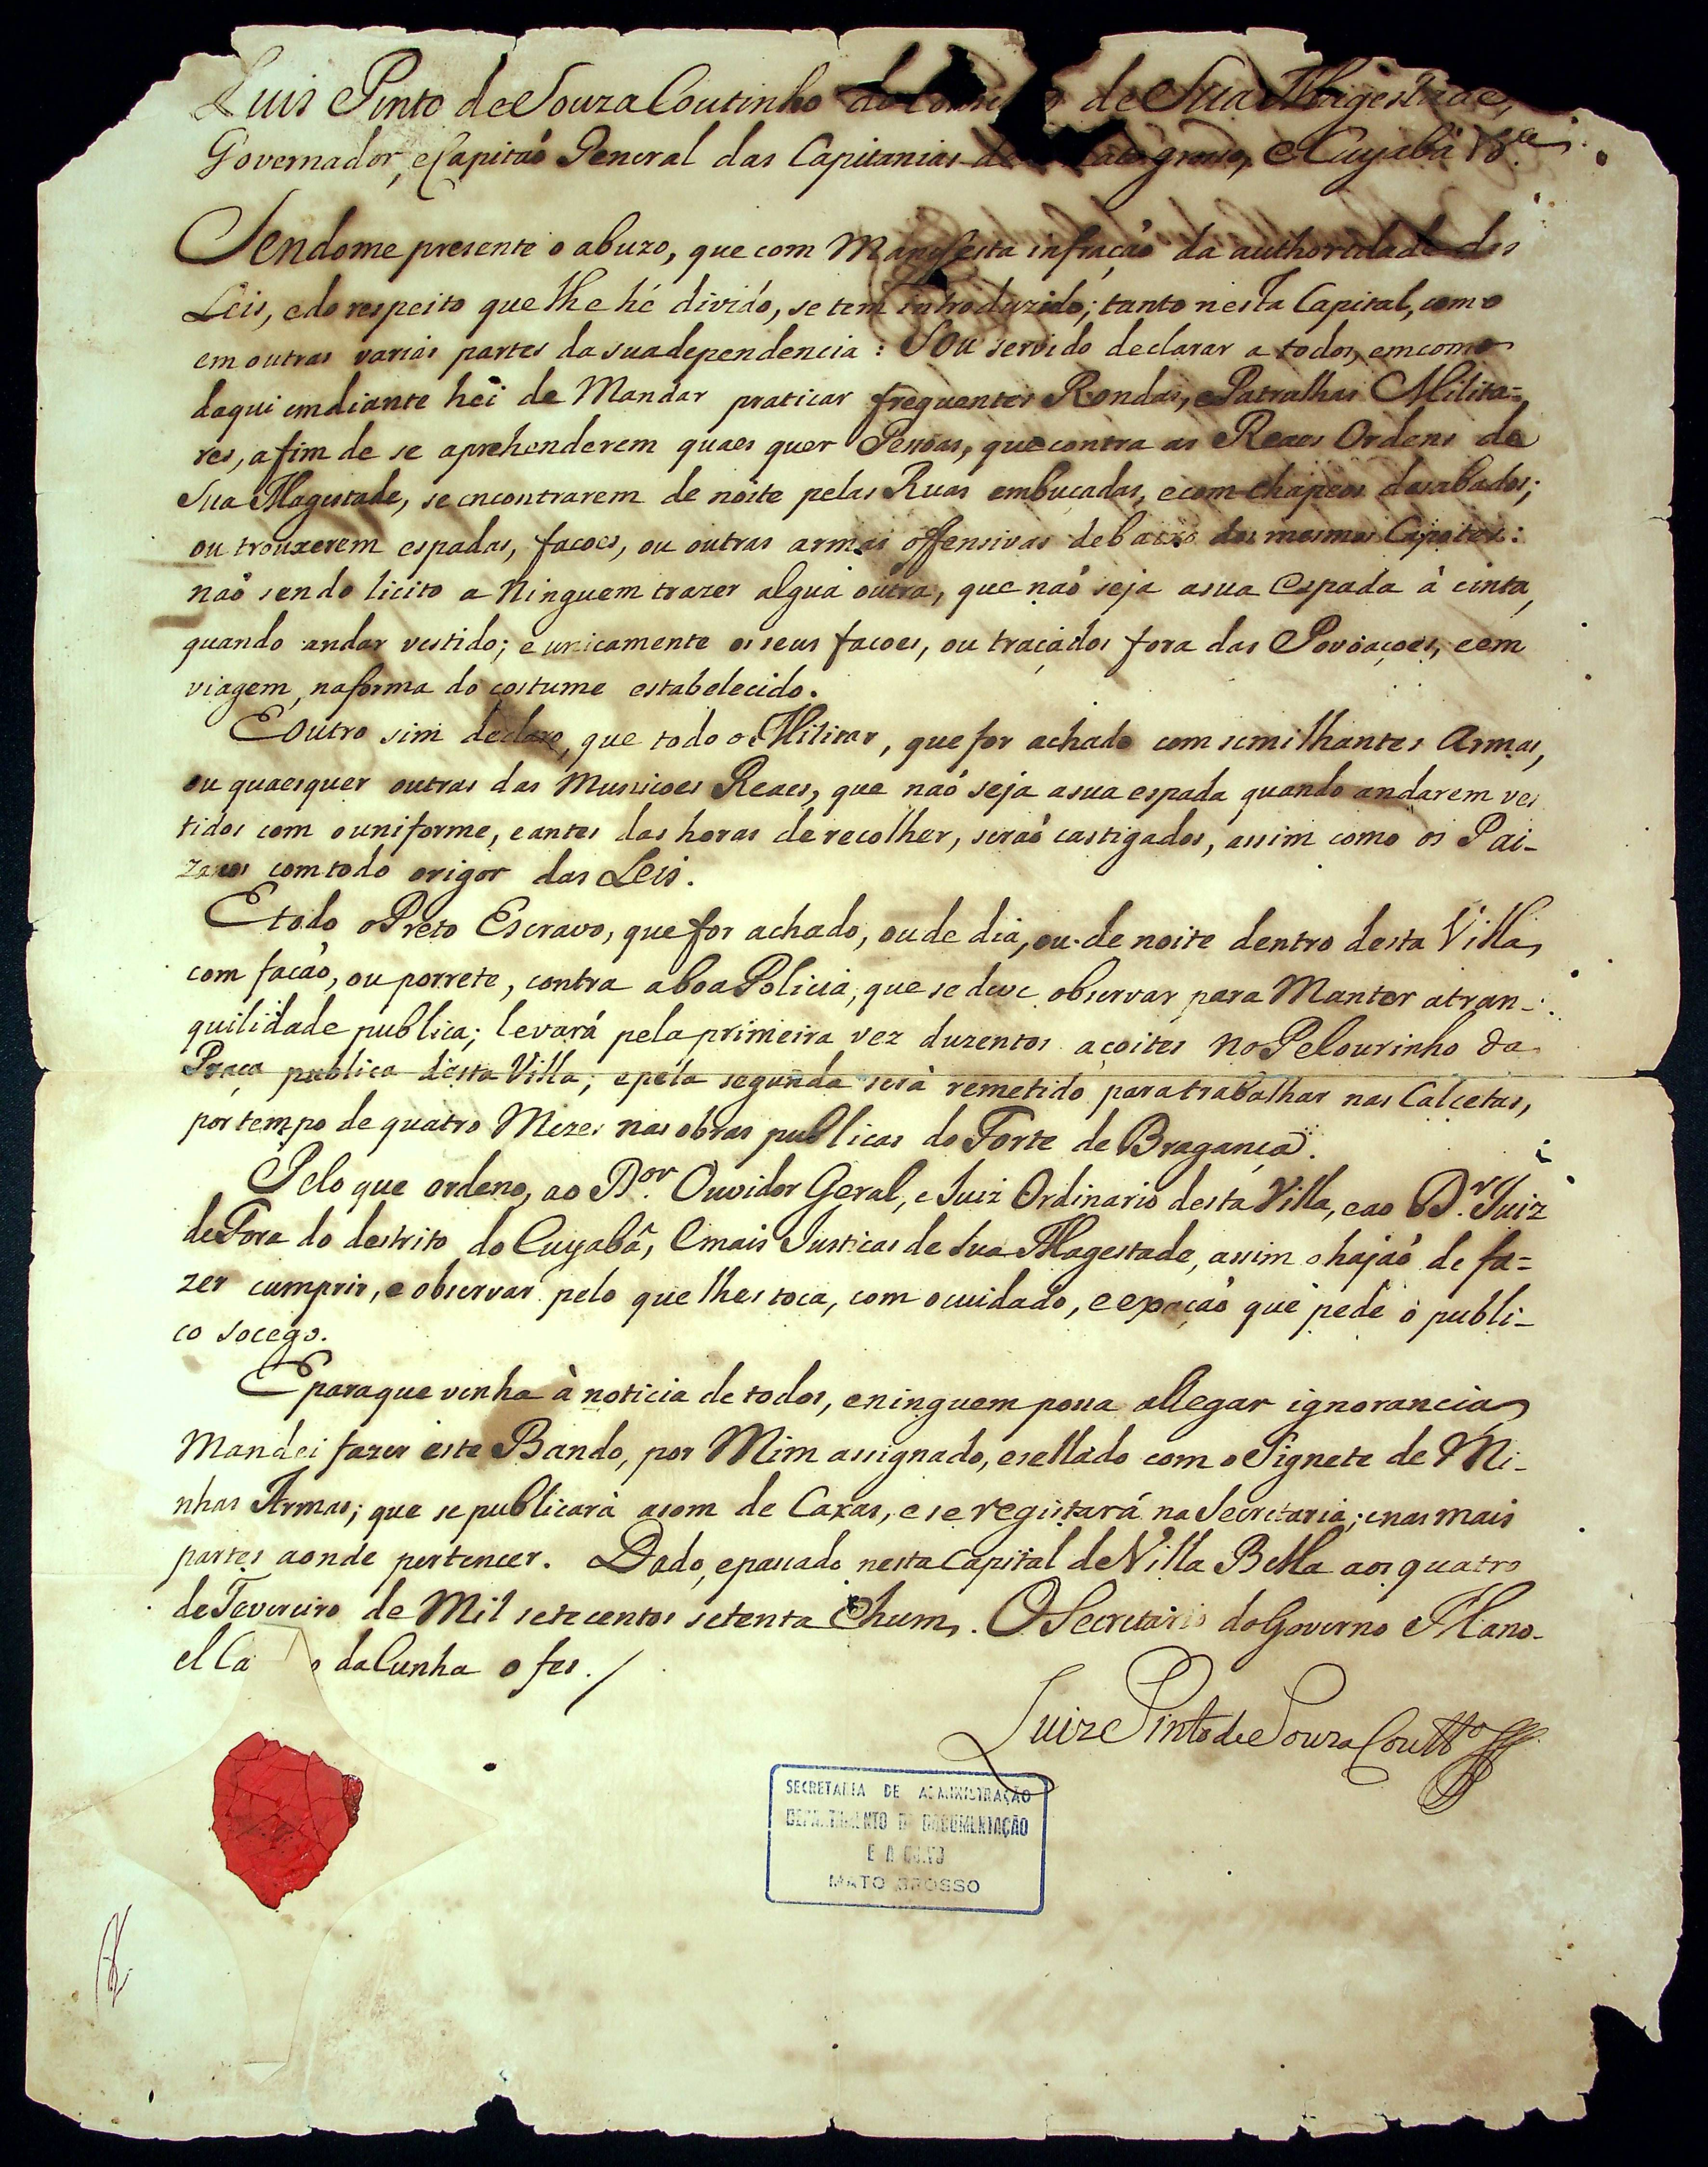 Luis Pinto de Souza Coutinho do de Sua Magestade,
Governador, e Capitaõ General das Capitanias de groso, e Cuyabá &.ª
Sendome presente o abuzo, que com Manifesta infraçaõ da authoridade das
Leis, e do respeito que lhe hé divido, se tem introduzido; tanto nesta Capital, como
em outras varias partes da sua dependencia: Sou servido declarar a todos, em como
daqui em diante hei de Mandar praticar frequentes Rondas, e Patrulhas Milita=
res, afim de se aprehenderem quaes quer Pessoas, que contra as Reaes Ordens de
Sua Magestade, se encontrarem de noite pelas Ruas embuçadas, e com chapeos desabados;
ou trouxerem espadas, facoes, ou outras armas offensivas debaixo dos mesmos Capotes:
naõ sendo licito a Ninguem trazer algua outra, que naõ seja a sua Espada à cinta,
quando andar vestido; e unicamente os seus facoes, ou traçados fora das Povoaçoes, e em
viagem, na forma do costume estabelecido.
E outro sim declaro, que todo o Militar, que for achado com similhantes Armas,
ou quaesquer outras das Muniçoes Reaes, que naõ seja a sua espada quando andarem ves
tidos com o uniforme, e antes das horas de recolher, seraõ castigados, assim como os Pai-
zanos com todo o rigor das Leis.
E todo o Preto Escravo, que for achado, ou de dia, ou de noite dentro desta Villa,
com facaõ, ou porrete, contra a boa Policia, que se deve observar para Manter a tran-
quilidade publica; levará pela primeira vez duzentos açoites no Pelourinho da
Praça publica desta Villa; e pela segunda será remetido para trabalhar nas Calcetas,
por tempo de quatro Mezes nas obras publicas do Forte de Bragança.
Pelo que ordeno, ao D.or Ouvidor Geral, e Juiz Ordinario desta Villa, e ao D.r Juiz
de Fora do destrito do Cuyabá, e mais Justicas de Sua Magestade, assim o hajaõ de fa=
zer cumprir, e observar pelo que lhes toca, com o cuidado, e expaçaõ que pede o publi-
co socego.
E para que venha à noticia de todos, e ninguem possa allegar ignorancia
Mandei fazer este Bando, por Mim assignado, e sellado com o Signete de Mi-
nhas Armas; que se publicará a som de Caxas, e se registará na Secretaria; e nas mais
partes aonde pertencer. Dado, e passado nesta Capital de Villa Bella aos quatro
de Fevereiro de Mil setecentos setenta e hum. O Secretario do Governo Mano-
el Ca o da Cunha o fes. /
Luiz Pinto de Souza Coutt.o
SECRETARIA DE ADMINISTRAÇÃO
DEPARTAMENTO DE DOCUMENTAÇÃO
E ARQUIVO
MATO GROSSO